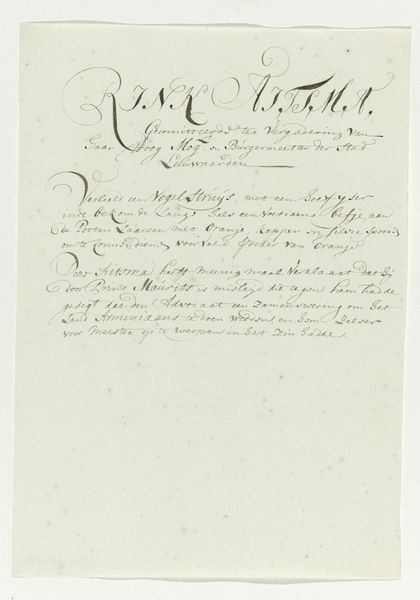 RINK AITSMA,
Gecomitteerde ter Vergadering van
Haar Hoog Mog. en Burgermeester der Stad
Leeuwaarden
Verbeeld een Vogel Struys, met een Hoef yser
in de bek om de Lange Hals een Predikants befje, aan
de Pooten Laarsen met Oranje koppen en
om te Comd voor Veld van Oranje
Deese Aitsma heeft menigmaal Verklaart dat hij
door Prins Maurits is misleyd die tegen hem hadde
gesegt dat den Advocaat een Zamenswering om het
Land Arminiaans te doen worden, en hem Zelver
voor Meester op te werpen in het Zin hadde.